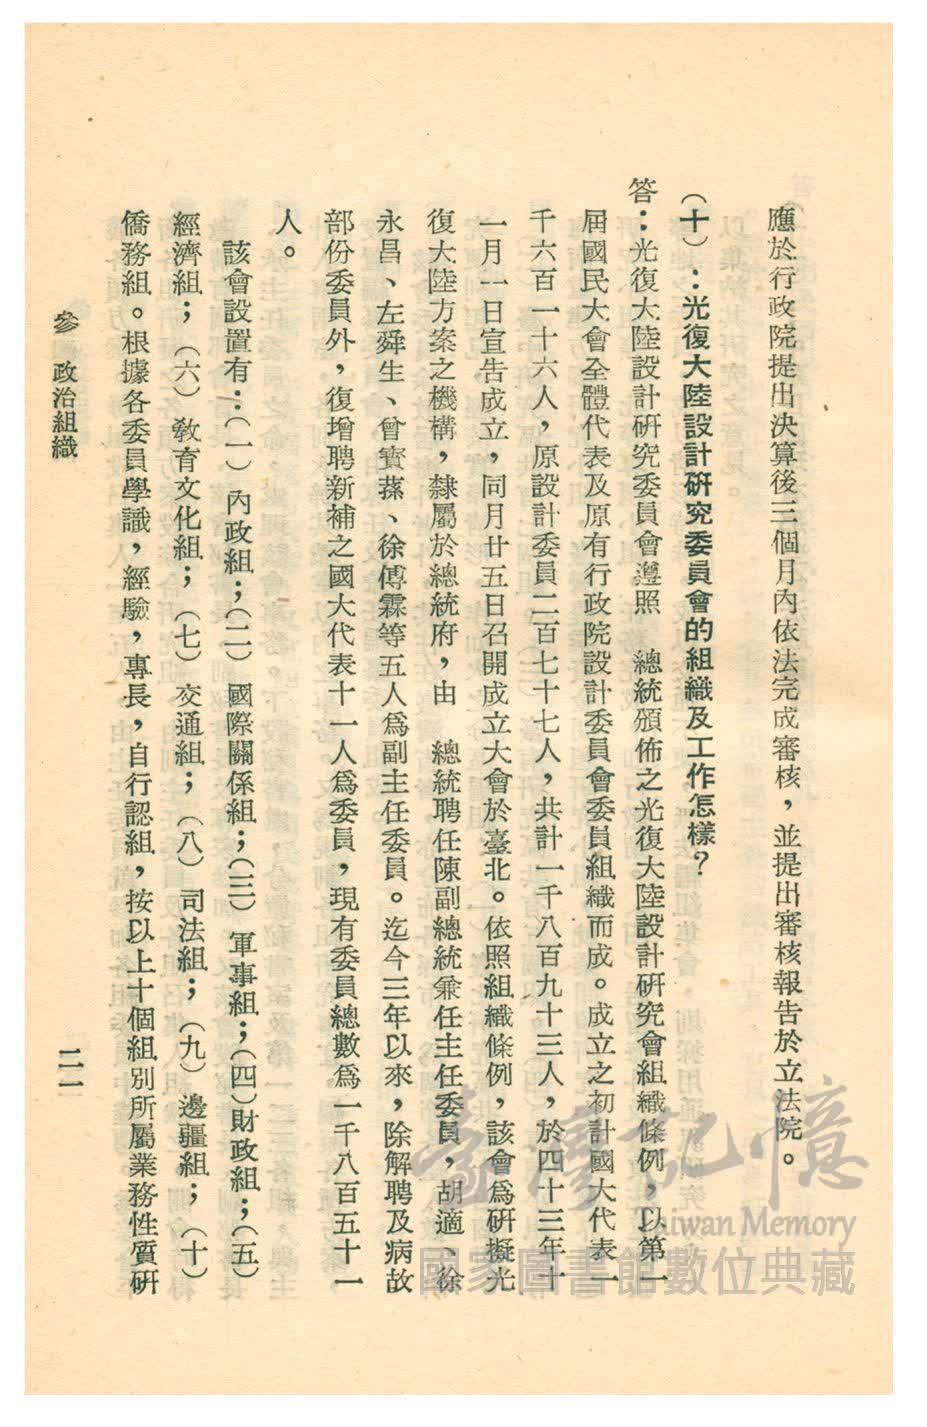 應於行政院提出決算後三個月內依法完成審核，並提出審核報告於立法院。
（十）：光復大陸設計研究委員會的組織及工作怎樣？
答：光復大陸設計研究委員會遵照　總統頒佈之光復大陸設計研究會組織條例，以第一
屆國民大會全體代表及原有行政院設計委員會委員組織而成。成立之初計國大代表一
千六百一十六人，原設計委員二百七十七人，共計一千八百九十三人，於四十三年十
一月一日宣告成立，同月廿五日召開成立大會於臺北。依照組織條例，該會爲研擬光
復大陸方案之機構，隸屬於總統府，由　總統聘任陳副總統兼任主任委員，胡適、徐
永昌、左舜生、曾寳蓀、徐傅霖等五人爲副主任委員。迄今三年以來，除解聘及病故
部份委員外，復增聘新補之國大代表十一人爲委員，現有委員總數爲一千八百五十一
人。
該會設置有：（一）內政組；（二）國際關係組；（三）軍事組；（四）財政組；（五）
經濟組；（六）敎育文化組；（七）交通組；（八）司法組；（九）邊疆組；（十）
僑務組。根據各委員學識，經驗，專長，自行認組，按以上十個組別所屬業務性質研
參　政治組織
二一
臺灣記憶
Taiwan Memory
國家圖書館數位典藏